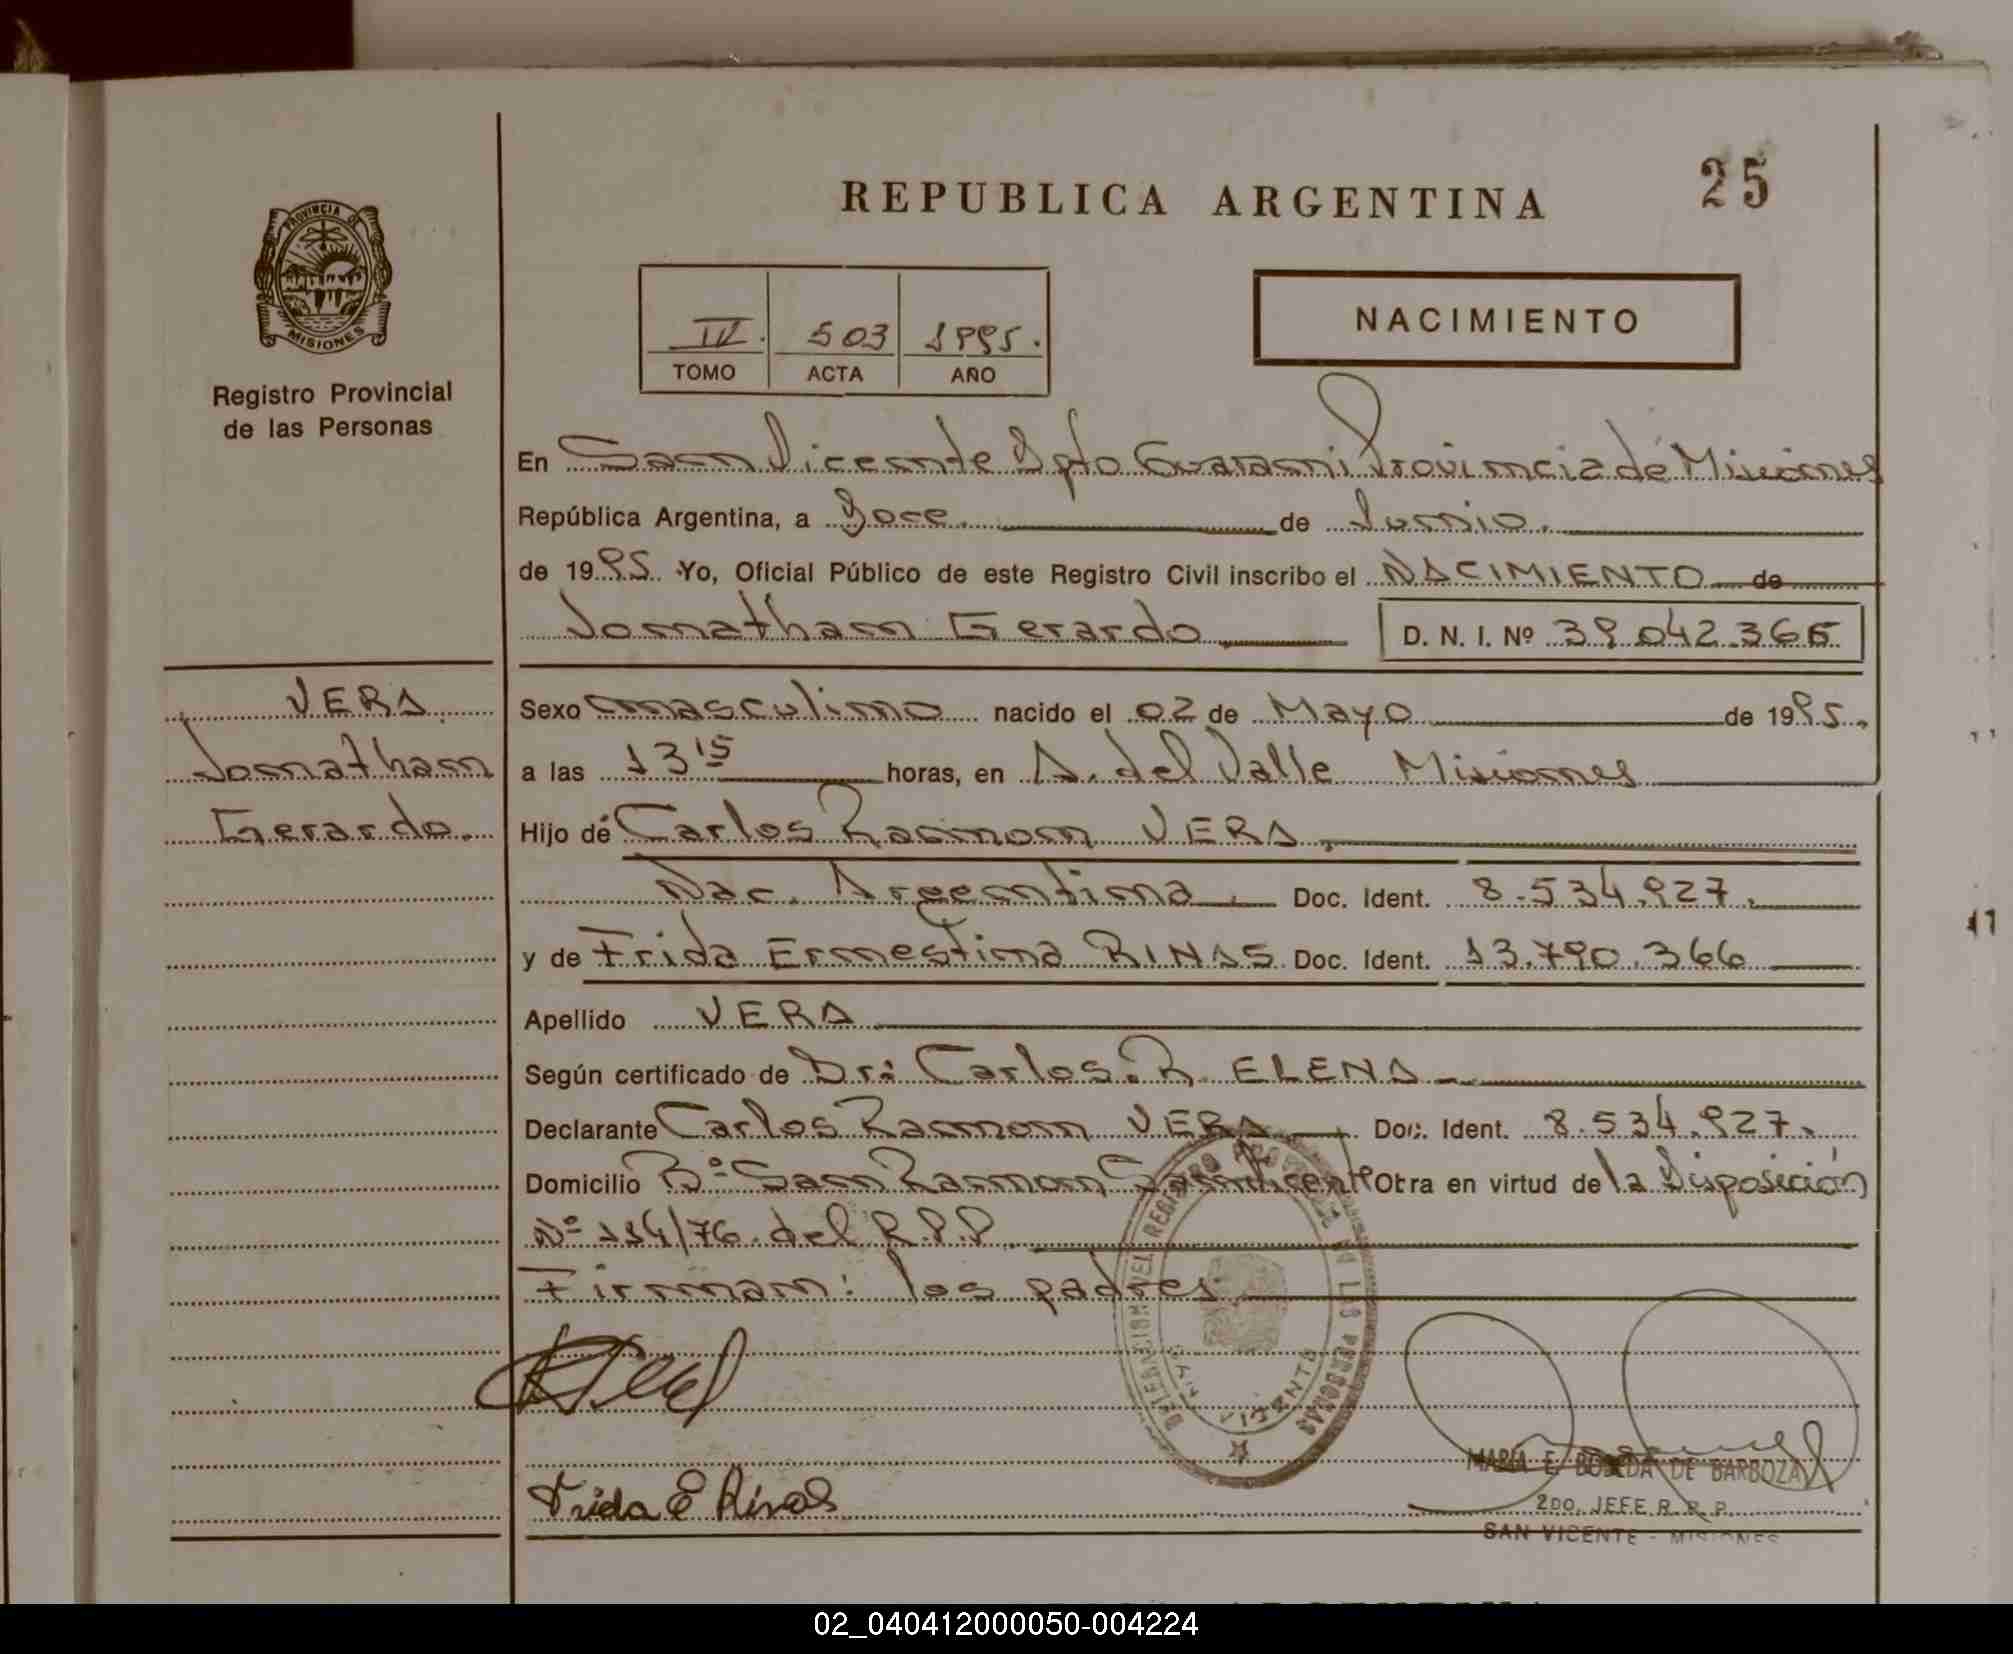 25
REPUBLICA ARGENTINA
PROVINCIA DE
MISIONES
Registro Provincial
de las Personas
IV. 503 1995.
TOMO ACTA AÑO
NACIMIENTO
En San Vicente Dpto Guarani Provincia de Misiones
República Argentina, a Doce. de Junio.
de 1995. Yo, Oficial Público de este Registro Civil inscribo el NACIMIENTO de
Jonathan Gerardo D. N. I. Nº 39.042.366
VERA
Jonathan
Gerardo.
Sexo masculino nacido el 02 de Mayo de 1995.
a las 13 15 horas, en A. del Valle Misiones
Hijo de Carlos Ramon VERA,
Nac. Argentina. Doc. Ident. 8.534.927.
y de Frida Ernestina RINAS Doc. Ident. 13.790.366
Apellido VERA
Según certificado de Dr: Carlos. R. ELENA
Declarante Carlos Ramon VERA Doc. Ident. 8.534.927.
Domicilio Bº San Ramon San Vicente Otra en virtud de la Disposición
Nº 134/76 del R.P.P
Firman: los padres.
REGISTRO PROVINCIAL DE LAS PERSONAS
SAN VICENTE
Frida E Rinas
MARIA E. BOBEDA DE BARBOZA
2DO. JEFE R. R. P.
SAN VICENTE - MISIONES
02_040412000050-004224